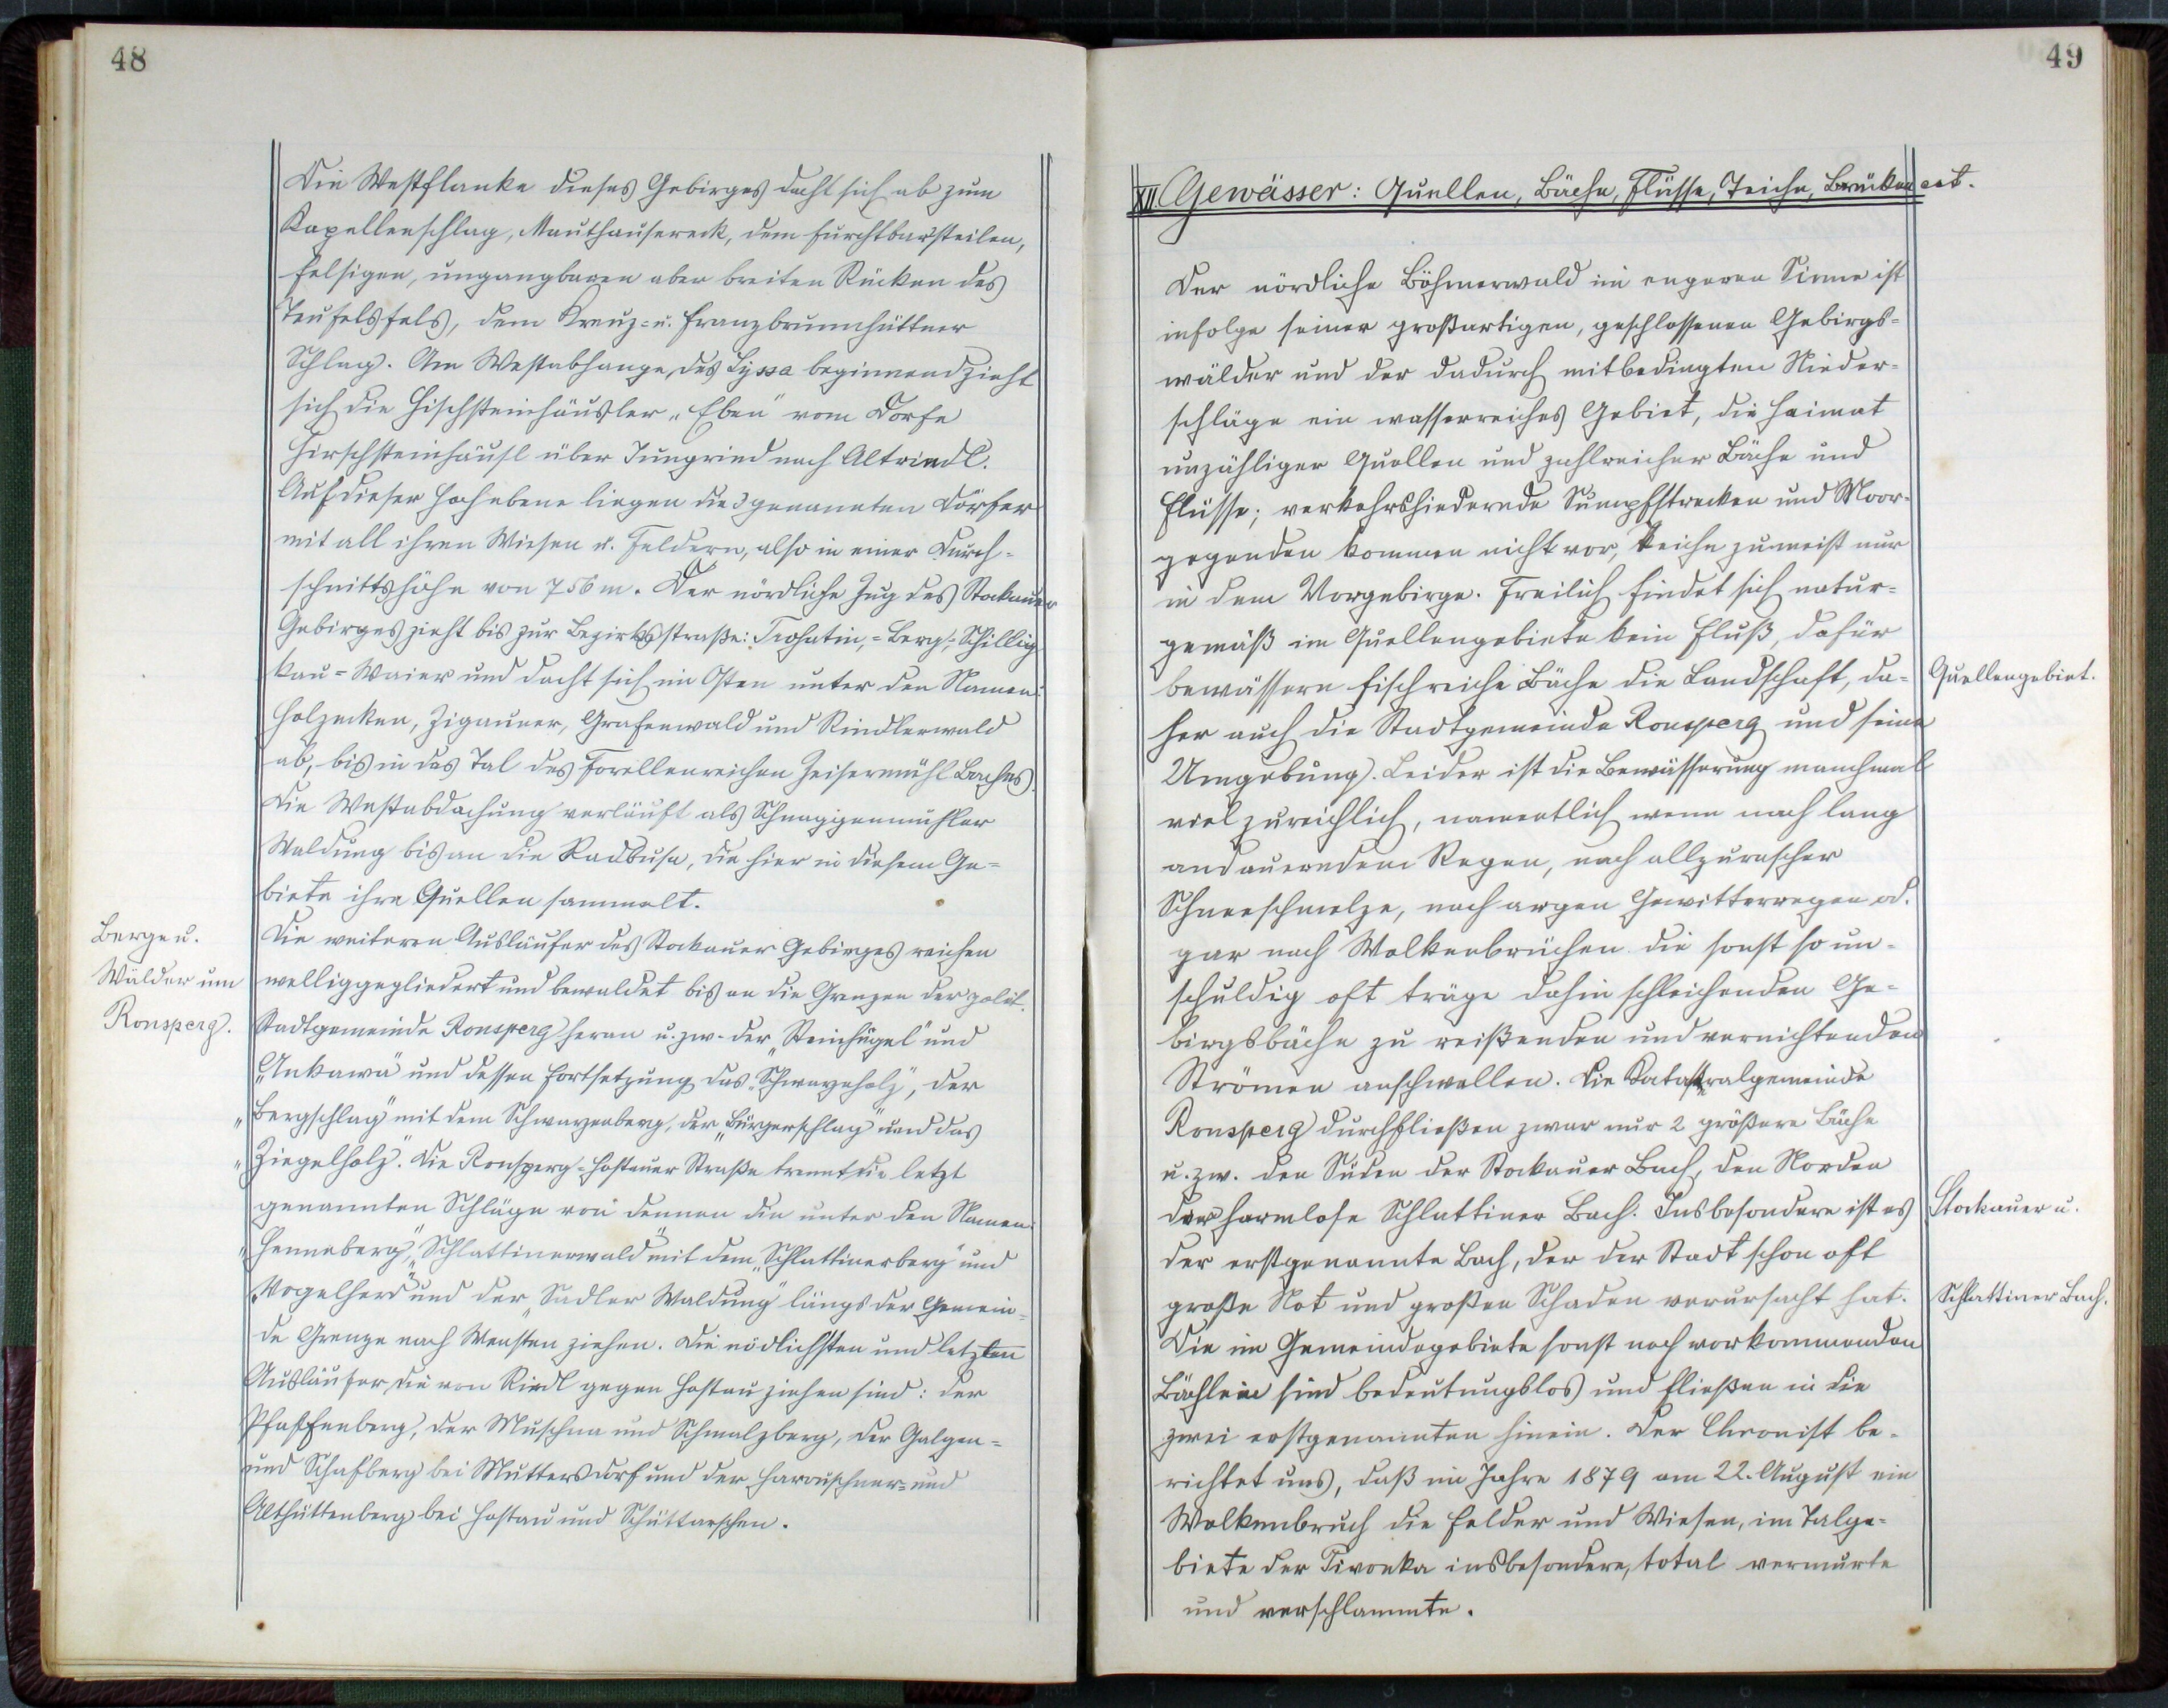 48
Die Westflanke dieses Gebirges dacht sich ab zum
Kapellenschlag, Mauthausereck, dem furchtbar steilen,
felsigen, ungangbaren aber breiten Rücken des
Teufelsfels, dem Kreuz- u. Franzbrunnhüttner
Schlag. Am Westabhange des Lyssa beginnend zieht
sich die Hischsteinhäusler „Eben" vom Dorfe
Hirschsteinhäusl über Jungried nach Altriedl.
Auf dieser Hochebene liegen die 3 genannten Dörfer
mit all ihren Wiesen u. Feldern, also in einer Durch-
schnittshöhe von 756 m. Der nördliche Zug des Stockauer
Gebirges zieht bis zur Bezirksstraße: Trohatin,-Berg,-Schillig
kau-Waier und dacht sich im Osten unter den Namen:
Holzecken, Zigauner, Grafenwald und Rindlerwald
ab, bis in das Tal des forellenreichen Zeisermühl Baches.
Die Westabdachung verläuft als Schnaggenmühler
Waldung bis an die Radbusa, die hier in diesem Ge-
biete ihre Quellen sammelt.
Berge u.
Wälder um
Ronsperg.
Die weiteren Ausläufer des Stockauer Gebirges reichen
wellig gegliedert und bewaldet bis an die Grenzen der polit.
Stadtgemeinde Ronsperg heran u. zw. der „Steinhügel" und
„Ankawa" und dessen Fortsetzung das „Schwarzholz", der
„Bergschlag" mit dem Schwarzenberg, der „Bürgerschlag" und das
„Ziegelholz". Die Ronsperg-Hostauer Straße trennt die letzt
genannten Schläge von dennen die unter den Namen:
„Henneberg", „Schlattinerwald" mit dem „Schlattinerberg" und
„Vogelherd" und der „Sadler Waldung" längs der Gemein-
de Grenze nach Wensten ziehen. Die nödlichsten und letzten
Ausläufer, die von Riedl gegen Hostau ziehen sind: der
Pfaffenberg, der Muschna und Schmalzberg, der Galgen-
und Schafberg bei Muttersdorf und der Haronschner- und
Althüttenberg bei Hostau und Schüttarschen.
49
XII Gewässer: Quellen, Bäche, Flüsse, Teiche, Brücken ect.
Der nördliche Böhmerwald im engeren Sinne ist
infolge seiner großartigen, geschlossenen Gebirgs-
wälder und der dadurch mitbedingten Nieder-
schläge ein wasserreiches Gebiet, die Heimat
unzähliger Quellen und zahlreicher Bäche und
Flüsse; verkehrshiedernde Sumpfstrecken und Moor-
gegenden kommen nicht vor, Teiche zumeist nur
in dem Vorgebirge. Freilich findet sich natur-
gemäß im Quellengebiete kein Fluß, dafür
bewässern fischreiche Bäche die Landschaft, da-
Quellengebiet.
her auch die Stadtgemeinde Ronsperg und seine
Umgebung. Leider ist die Bewässerung manchmal
viel zu reichlich, namentlich wenn nach lang
andauerndem Regen, nach allzurascher
Schneeschmelze, nach argen Gewitterregen od.
gar nach Wolkenbrüchen die sonst so un-
schuldig oft träge dahin schleichenden Ge-
birgsbäche zu reißenden und vernichtenden
Strömen anschwellen. Die Katastralgemeinde
Ronsperg durchfließen zwar nur 2 größere Bäche
u. zw. den Süden der Stockauer Bach, den Norden
der harmlose Schlattiner Bach. Insbesondere ist es
Stockauer u.
der erstgenannte Bach, der der Stadt schon oft
große Not und großen Schaden verursacht hat.
Schlattiner Bach.
Die im Gemeindegebiete sonst noch vorkommenden
Bächlein sind bedeutungslos und fließen in die
zwei erstgenannten hinein. Der Chronist be-
richtet uns, daß im Jahre 1879 am 22. August ein
Wolkenbruch die Felder und Wiesen, im Talge-
biete der Tivonka insbesondere, total vermurte
und verschlammte.